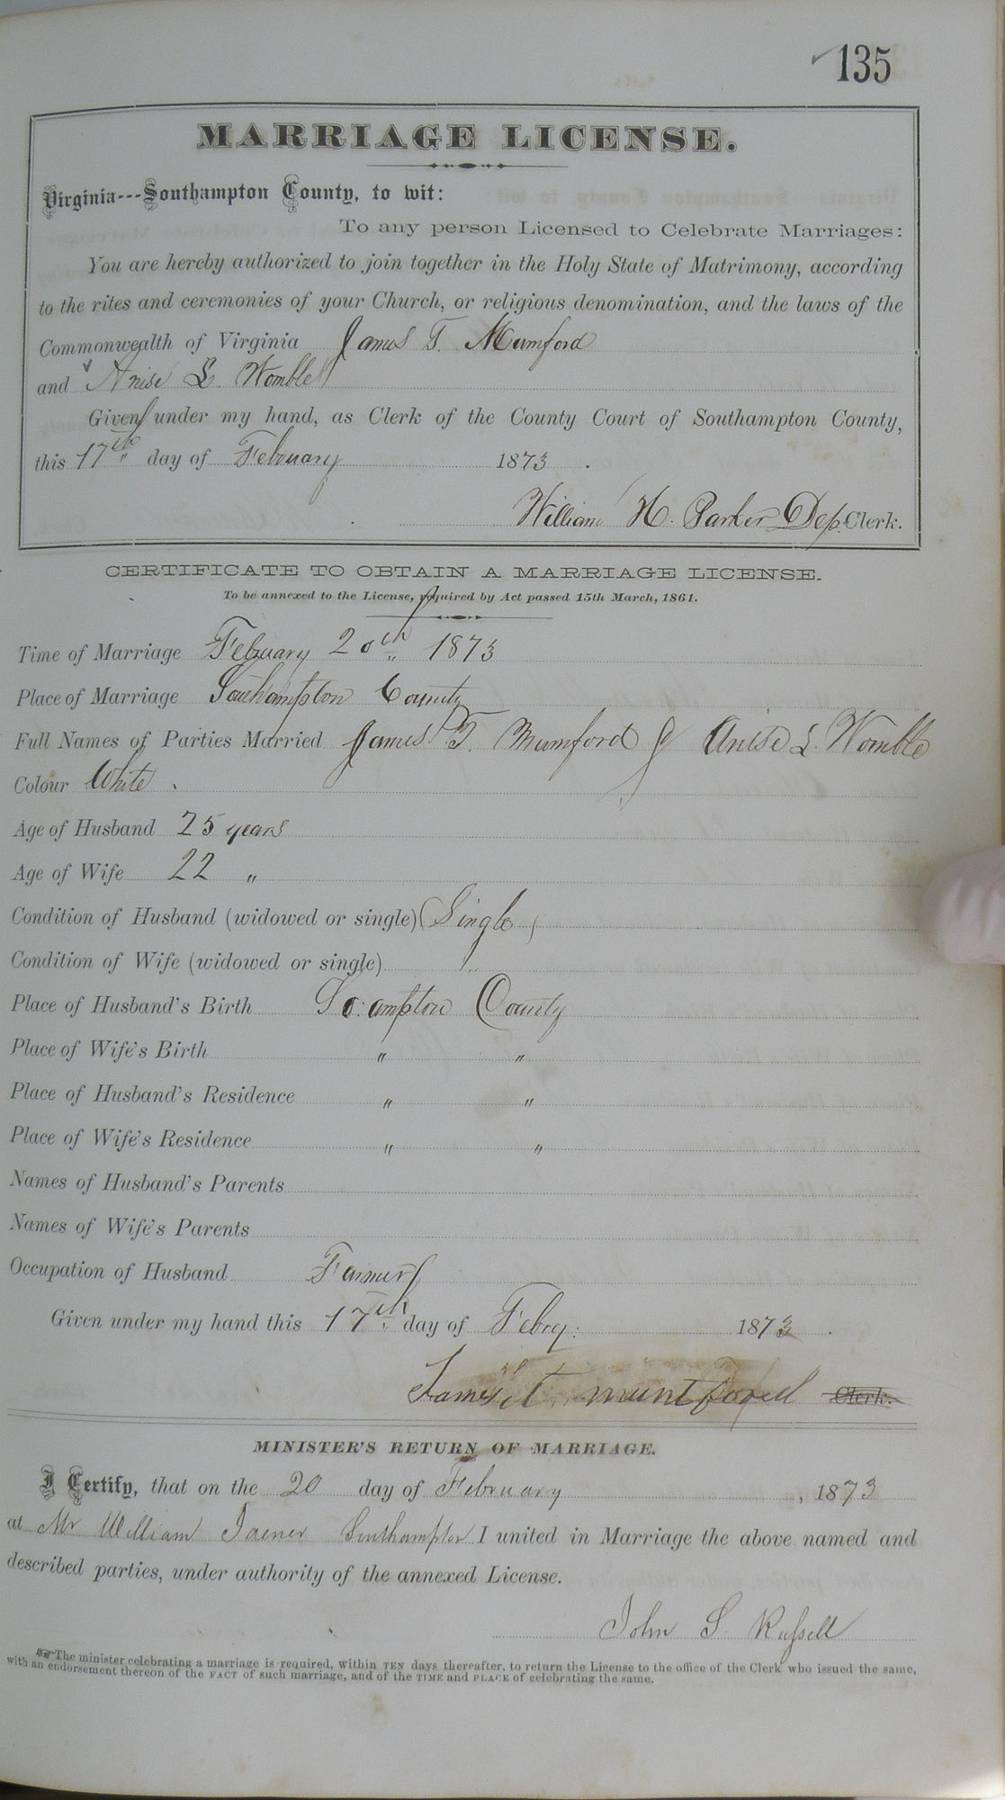 135
MARRIAGE LICENSE.
Virginia---Southampton County, to wit:
To any person Licensed to Celebrate Marriages:
You are hereby authorized to join together in the Holy State of Matrimony, according
to the rites and ceremonies of your Church, or religious denomination, and the laws of the
Commonwealth of Virginia James T. Mumford
and Anise L. Womble
Given under my hand, as Clerk of the County Court of Southampton County,
this 17th day of February 1873.
William H. Parker Dep. Clerk.
CERTIFICATE TO OBTAIN A MARRIAGE LICENSE.
To be annexed to the License, required by Act passed 15th March, 1861.
Time of Marriage February 20th 1873
Place of Marriage Southampton County
Full Names of Parties Married James T. Mumford & Anise L. Womble
Colour White.
Age of Husband 25 years
Age of Wife 22 "
Condition of Husband (widowed or single) (Single)
Condition of Wife (widowed or single) "
Place of Husband's Birth So:ampton County
Place of Wife's Birth " "
Place of Husband's Residence " "
Place of Wife's Residence " "
Names of Husband's Parents
Names of Wife's Parents
Occupation of Husband Farmer
Given under my hand this 17th day of Febry: 1873.
James T. muntford Clerk.
MINISTER'S RETURN OF MARRIAGE.
I Certify, that on the 20 day of February, 1873
at Mr William Southampton I united in Marriage the above named and
described parties, under authority of the annexed License.
John S Russell
☞The minister celebrating a marriage is required, within TEN days thereafter, to return the License to the office of the Clerk who issued the same,
with an endorsement thereon of the FACT of such marriage, and of the TIME and PLACE of celebrating the same.